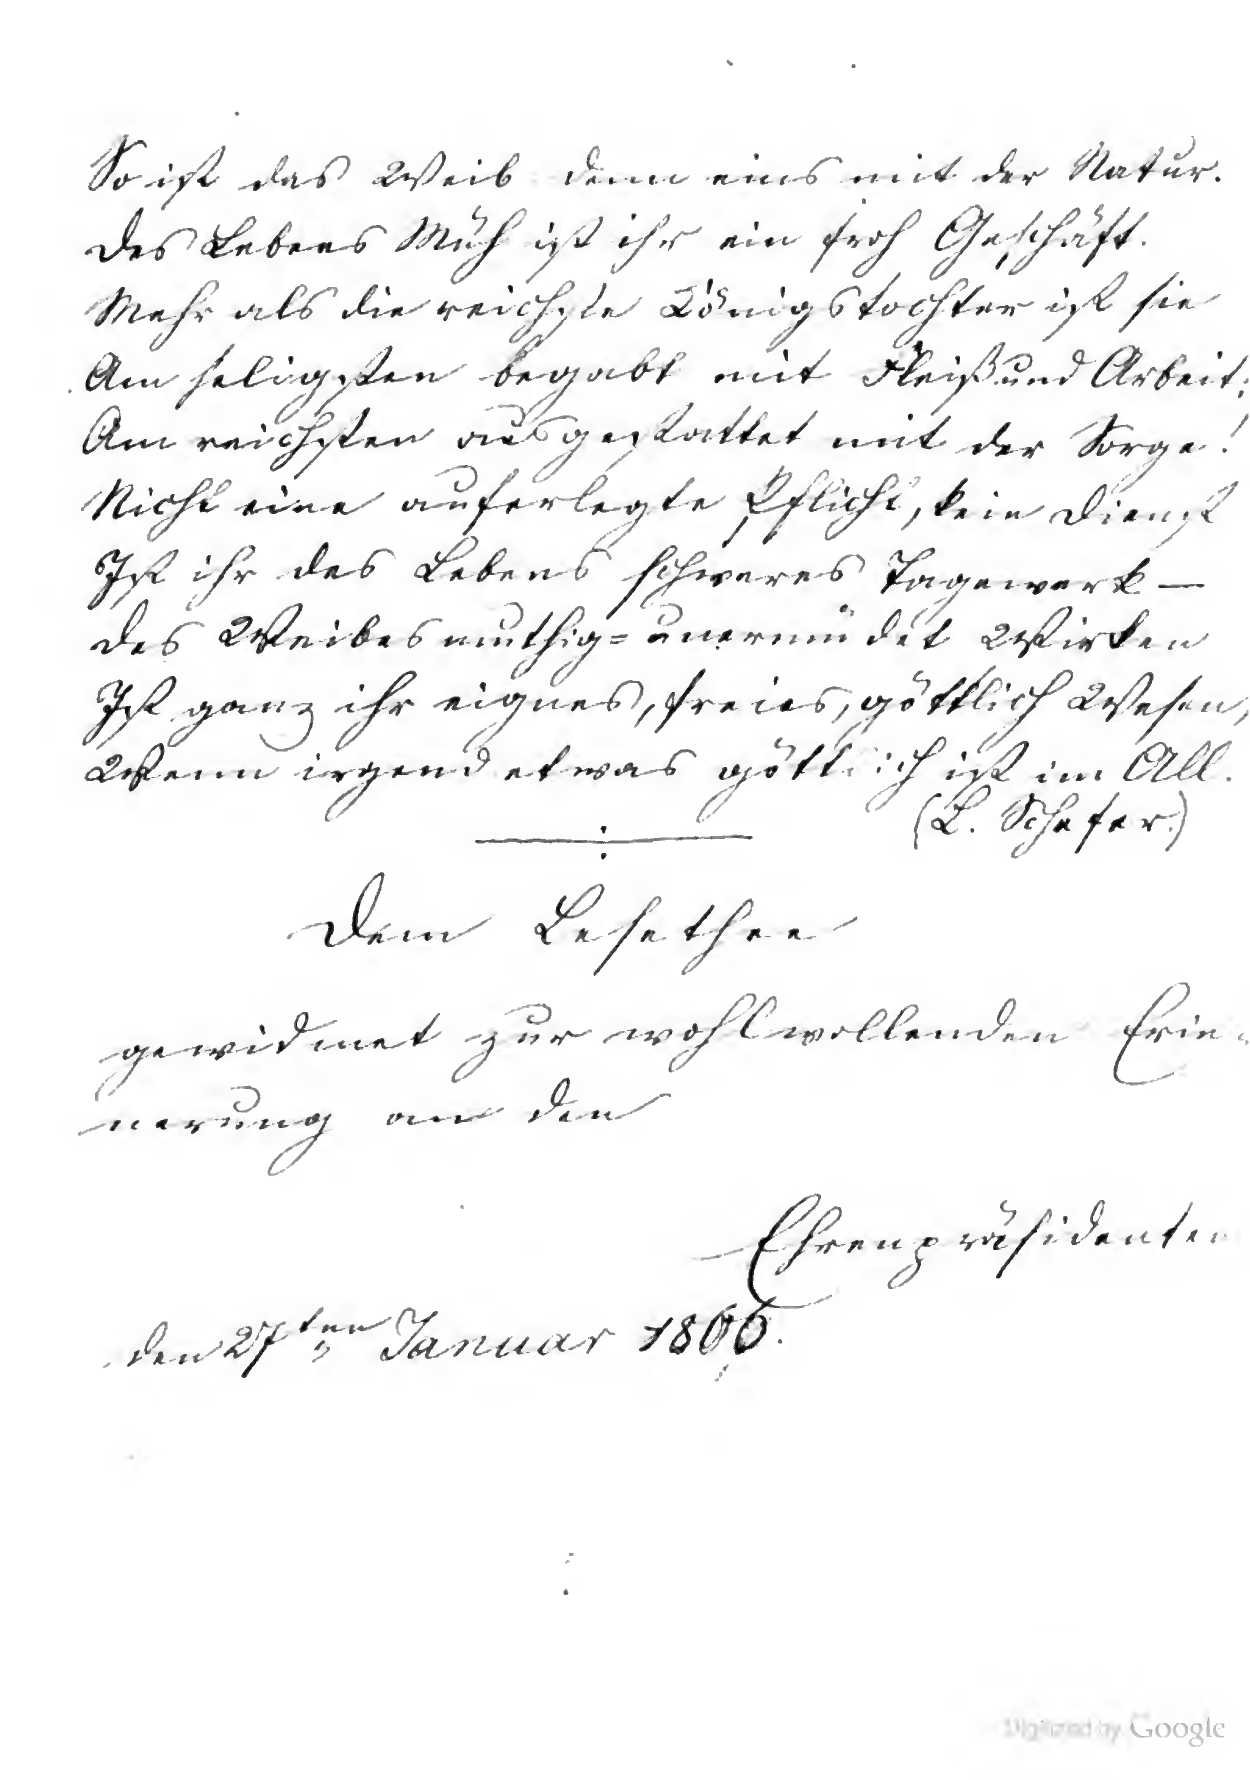 So ist das Weib denn eins mit der Natur.
Des Lebens Müh ist ihr ein froh Geschäft.
Mehr als die reichste Königstochter ist sie
Am seligsten begabt mit Fleiß und Arbeit;
Am reichsten ausgestattet mit der Sorge!
Nicht eine auferlegte Pflicht, kein Dienst
Ist ihr des Lebens schweres Tagewerk —
Des Weibes muthig=unermüdet Wirken
Ist ganz ihr eignes, freies, göttlich Wesen,
Wenn irgend etwas göttlich ist im All.
(L. Schefer.)
Dem Lesethee
gewidmet zur wohlwollenden Erin-
nerung an den
Ehrenpräsidenten
den 27ten Januar 1866.
Digitized by Google